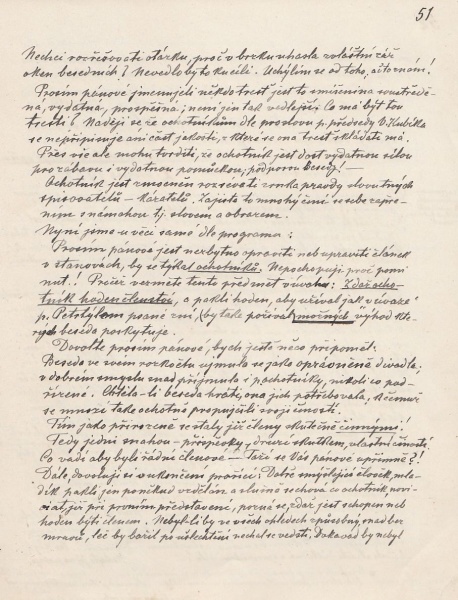 51
Nechci rozřešovati otázku, proč v brzku uhasla zvláštní zář
oken besedních? Nevedlo by to ku cíli. Uchýlím se od toho, ač to norní!
Prosím pánové jmenujeli někdo trest jest to smíšenina soustředě-
ná, vydatná, prospěšná; není jen tak vedlejší. Co má být tou
trestí? Naději se že ochotníkům dle proslovu p. předsedy V. Kubíka
se nepřipisuje ani část jakosti, z které se ona trest skládati má.
Přes vše ale mohu tvrditi, že ochotník jest dost vydatnou silou
pro zábavu i vydatnou pomůckou, podporou Besedy! —
Ochotník jest zmocněn rozsévati zrnka pravdy slovutných
spisovatelů — karatelů. Zajisté to mnohý činí se sebezapře-
ním s námahou tj. slovem a obrazem.
Nyní jsme u věci samé dle programu:
Prosím pánové jest nezbytno opraviti neb upraviti článek
v stanovách, by se týkal ochotníků. Nepochopuji proč pomi
nut! Pročež vezměte tento předmět v úvahu: Zdaž ocho-
tník hoden členstva, a pakli hoden, aby užíval jak v úvaze
p. Petrtýlem psané zní, (by také požíval možných výhod kte-
rých beseda poskytuje.
Dovolte prosím pánové, bych jestě něco připomněl:
Beseda ve svém rozkvětu ujmula se jako oprávněně divadla,
v dobrém smyslu snad přijmula i pochotníky, nikoli co pod-
řízené. Chtěla-li beseda hráti, ona jich potřebovala, k čemuž
se mnozí tako ochotně propůjčili svojí činností.
Tím jako přirozeně se staly již členy skutečně činnými!
Tedy jedni snahou — příspěvky, druzí skutkem, vlastní činností.
Co vadí aby byli řádní členové — Táži se Vás pánové upřímně?!
Dále, dovoluji si o ukončení prořící: Dobře smýšlející člověk, mla-
dík pakli jen poněkud vzdělán a slušně se chová co ochotník, novi-
ciat, již při prvním představení, pozná se, zdaž jest schopen neb
hoden býti členem. Nebyl-li by ve všech ohledech způsobný, snad bez
mravů, leč by bažil po ušlechtění nechal se vésti. Dokavád by nebyl